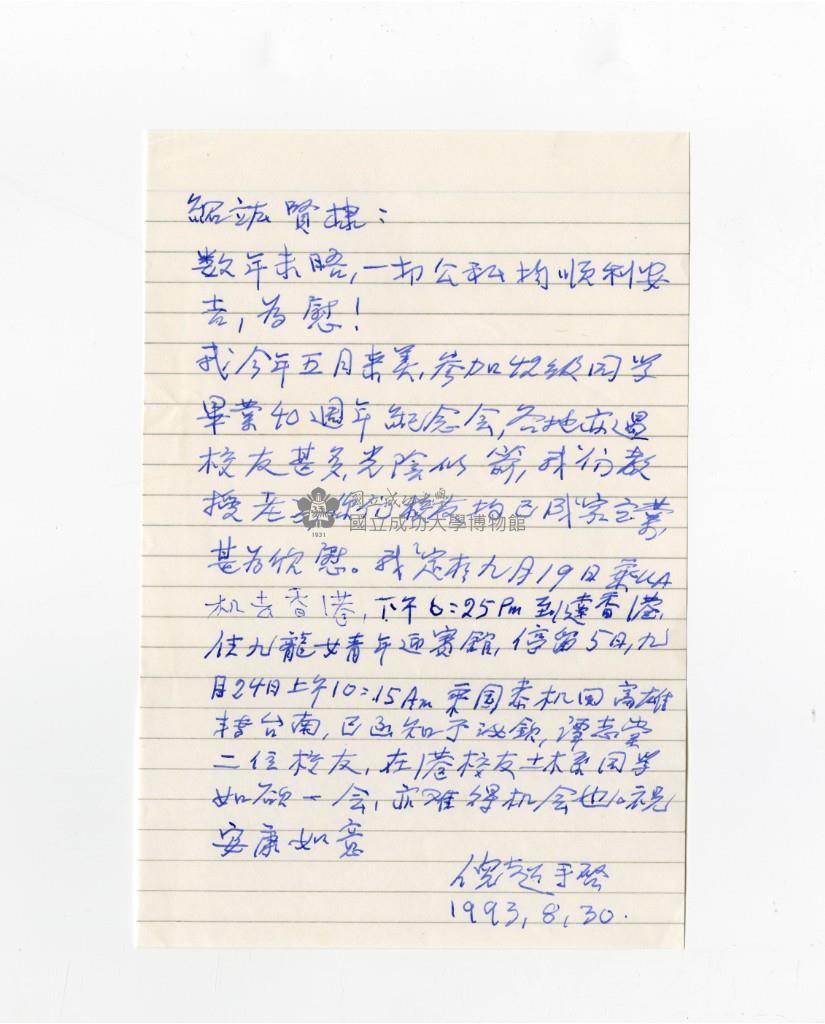 賢棣：
数年未晤，一切公私均順利安
吉，為慰！
我今年五月来美，参加42級同学
畢業40週年紀念会，各地亦遇
校友甚多，光陰似箭，我們教
授老，校友均已成家立業，
甚为欣慰。我定於九月19日乘UA
机去香港，下午6:25Pm到達香港，
住九龍女青年迎賓館，停留5日，九
月24日上午10:15Am乘国泰机回高雄
轉台南，已函知于，譚志棠
二位校友，在港校友土木系同学
如欲一会，亦难得机会也。祝
安康如意
倪超手啓
1993，8，30.
國立成功大學
國立成功大學博物館
1931